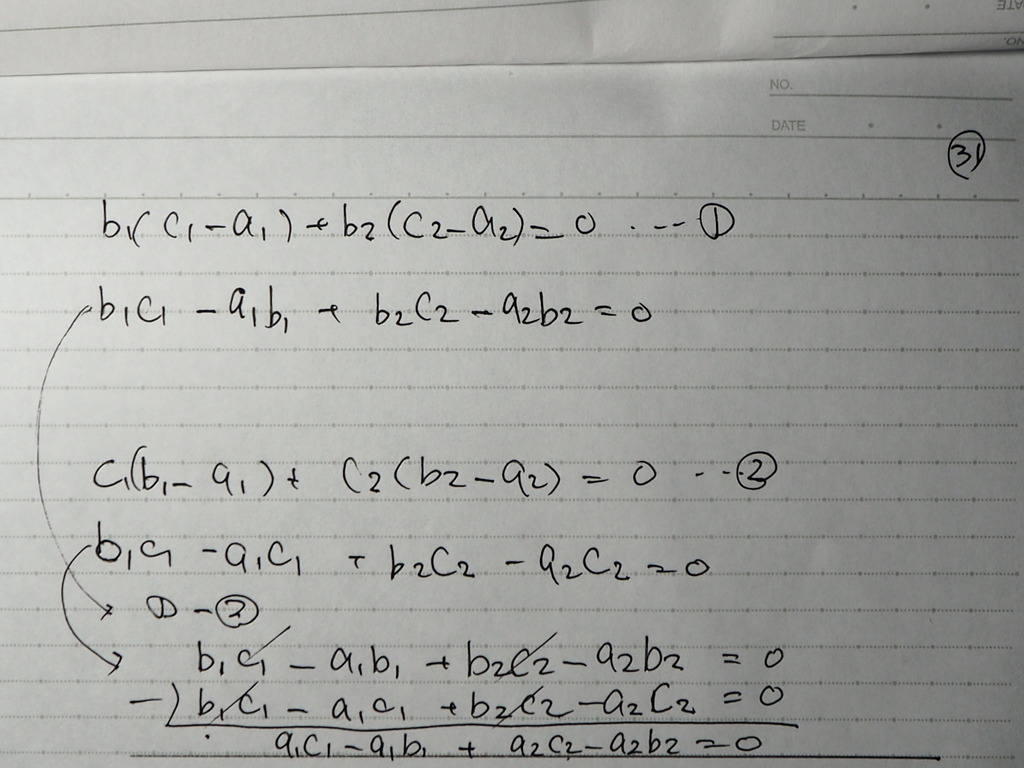 NO.
DATE
31
b₁(c₁-a₁)+b₂(c₂-a₂)=0 ... ①
b₁c₁-a₁b₁+b₂c₂-a₂b₂=0
c₁(b₁-a₁)+c₂(b₂-a₂)=0 ... ②
b₁c₁-a₁c₁+b₂c₂-a₂c₂=0
①-②
b₁c₁-a₁b₁+b₂c₂-a₂b₂=0
-) b₁c₁-a₁c₁+b₂c₂-a₂c₂=0
a₁c₁-a₁b₁+a₂c₂-a₂b₂=0